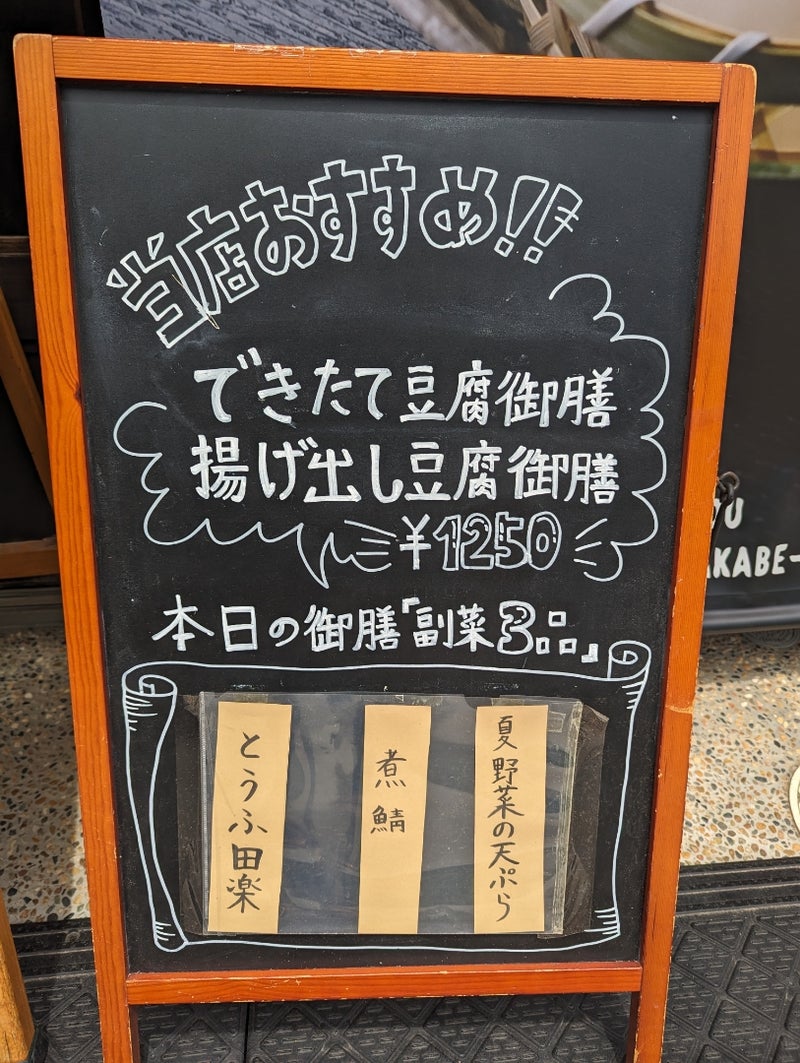 当店おすすめ!!
できたて豆腐御膳
揚げ出し豆腐御膳
¥1250
本日の御膳「副菜3品」
夏野菜の天ぷら
煮鯖
とうふ田楽
AKABE-